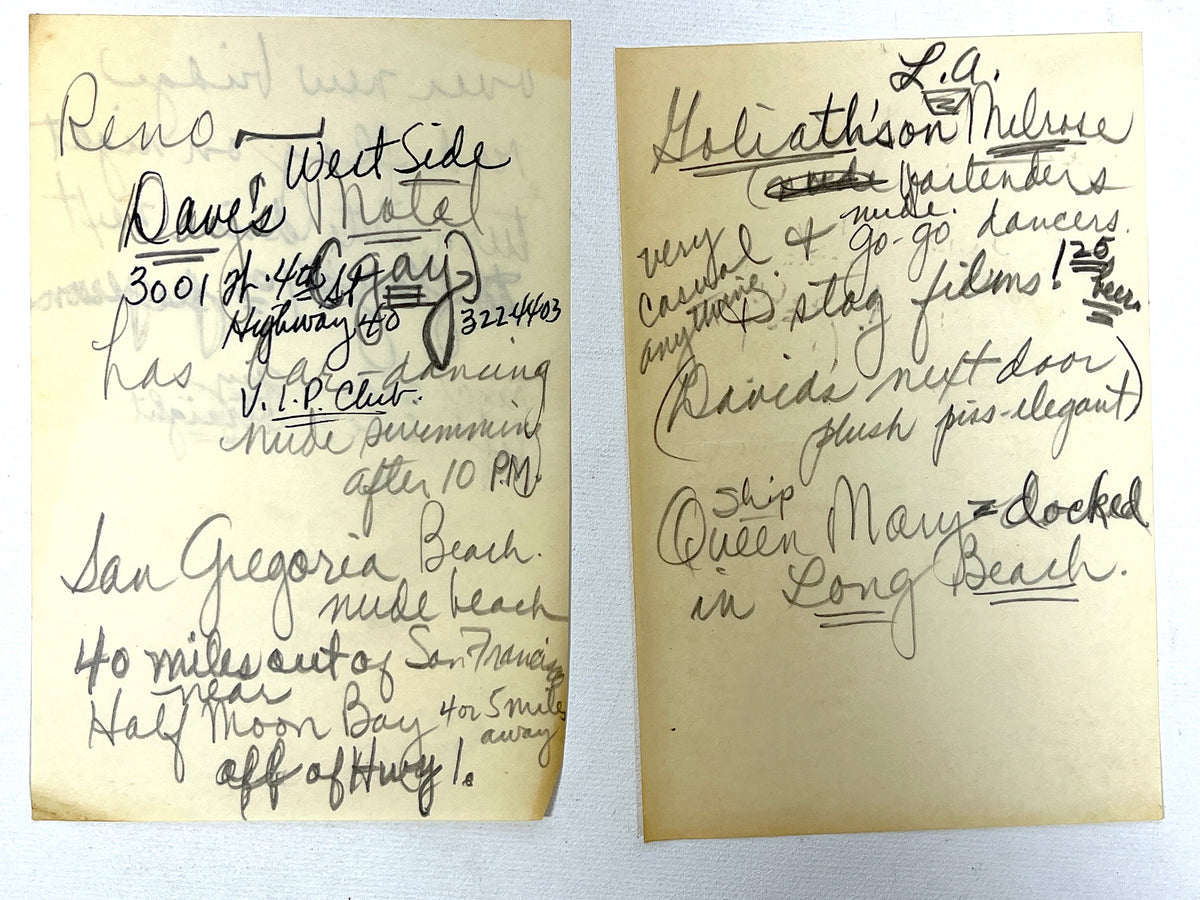 Reno
West Side
Dave's Motel
(gay)
3001 W. 4th St
Highway 40 322-4403
has bar-dancing
V.I.P. Club.
nude swimming
after 10 P.M.
San Gregoria Beach.
nude beach
40 miles out of San Francisco
near
Half Moon Bay 4 or 5 miles
away
off of Hwy 1.
L.A.
Goliath's on Melrose
(nude bartenders
nude.
very & go-go dancers.
casual
anything. & stag films! 125
beers
(David's next door
plush piss-elegant)
Ship
Queen Mary = docked
in Long Beach.